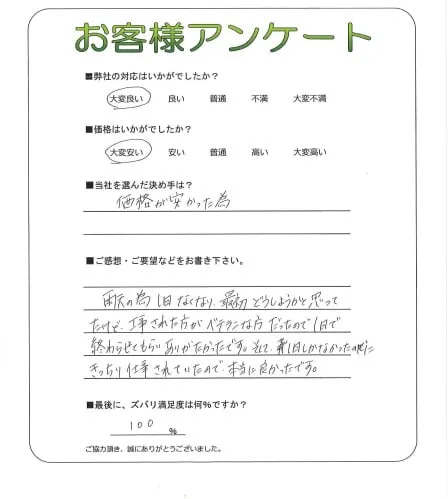 お客様アンケート
■弊社の対応はいかがでしたか?
大変良い 良い 普通 不満 大変不満
■価格はいかがでしたか?
大変安い 安い 普通 高い 大変高い
■当社を選んだ決め手は?
価格が安かった為
■ご感想・ご要望などをお書き下さい。
雨天の為1日なくなり、最初どうしようかと思って
たけど、工事された方がベテランな方だったので1日で
終わらせてもらいありがたかったです。そして、1日しかなかったのに
きっちり仕事されていたので、本当に良かったです。
■最後に、ズバリ満足度は何%ですか?
100 %
ご協力頂き、誠にありがとうございました。